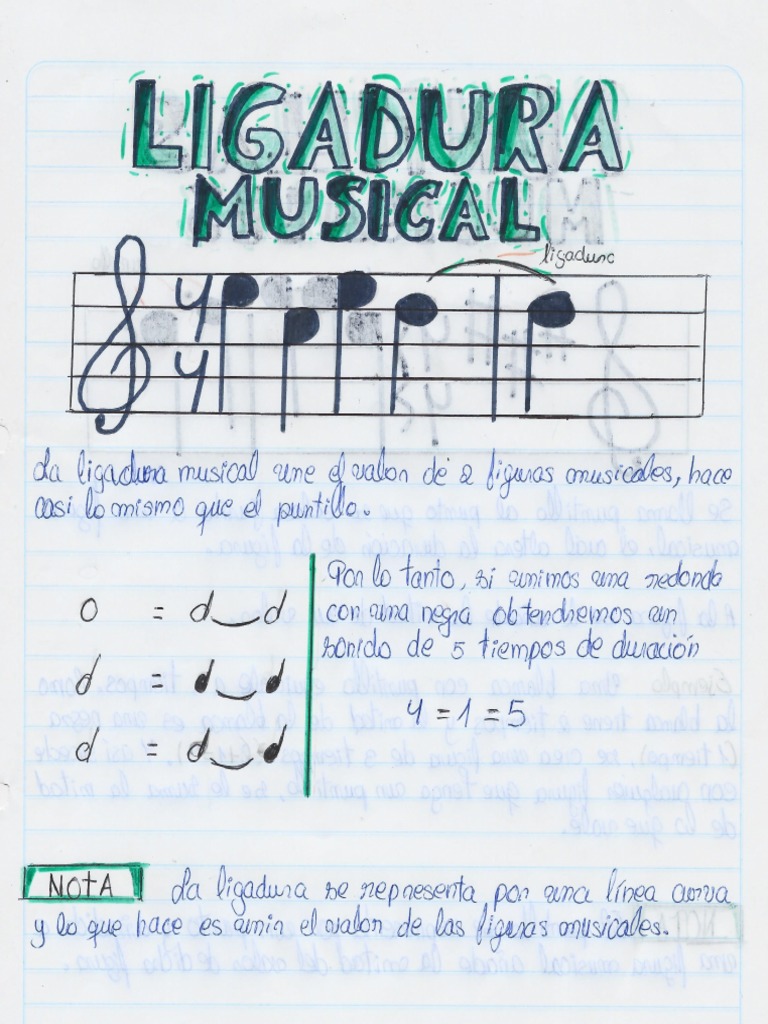 LIGADURA
MUSICAL
ligadura
4
4
La ligadura musical une el valor de 2 figuras musicales, hace
casi lo mismo que el puntillo.
Por lo tanto, si unimos una redonda
con una negra obtendremos un
sonido de 5 tiempos de duración
4 = 1 = 5
NOTA La ligadura se representa por una línea curva
y lo que hace es unir el valor de las figuras musicales.